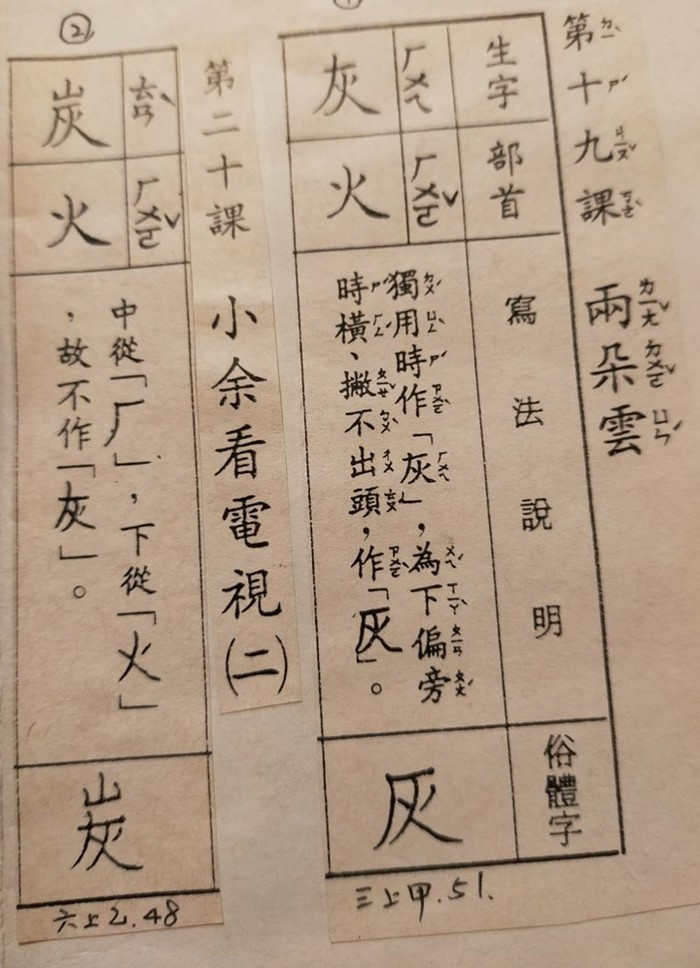 ①
第十九課 兩朵雲
ㄌㄧㄤˇ ㄉㄨㄛˇ ㄩㄣˊ
生字
部首
寫法說明
俗體字
ㄏㄨㄟ
灰
ㄏㄨㄛˇ
火
獨用時作「灰」，為下偏旁
時橫、撇不出頭，作「灰」。
灰
三上甲.51.
②
第二十課 小余看電視(二)
ㄊㄢˋ
炭
ㄏㄨㄛˇ
火
中從「厂」，下從「火」
，故不作「灰」。
炭
六上乙.48